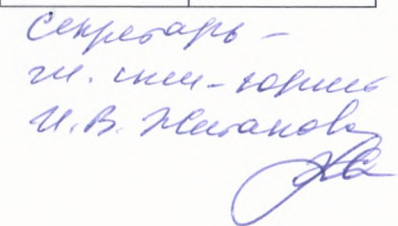 Секретарь –
гл. спец-юрист
И. В. Жиганова